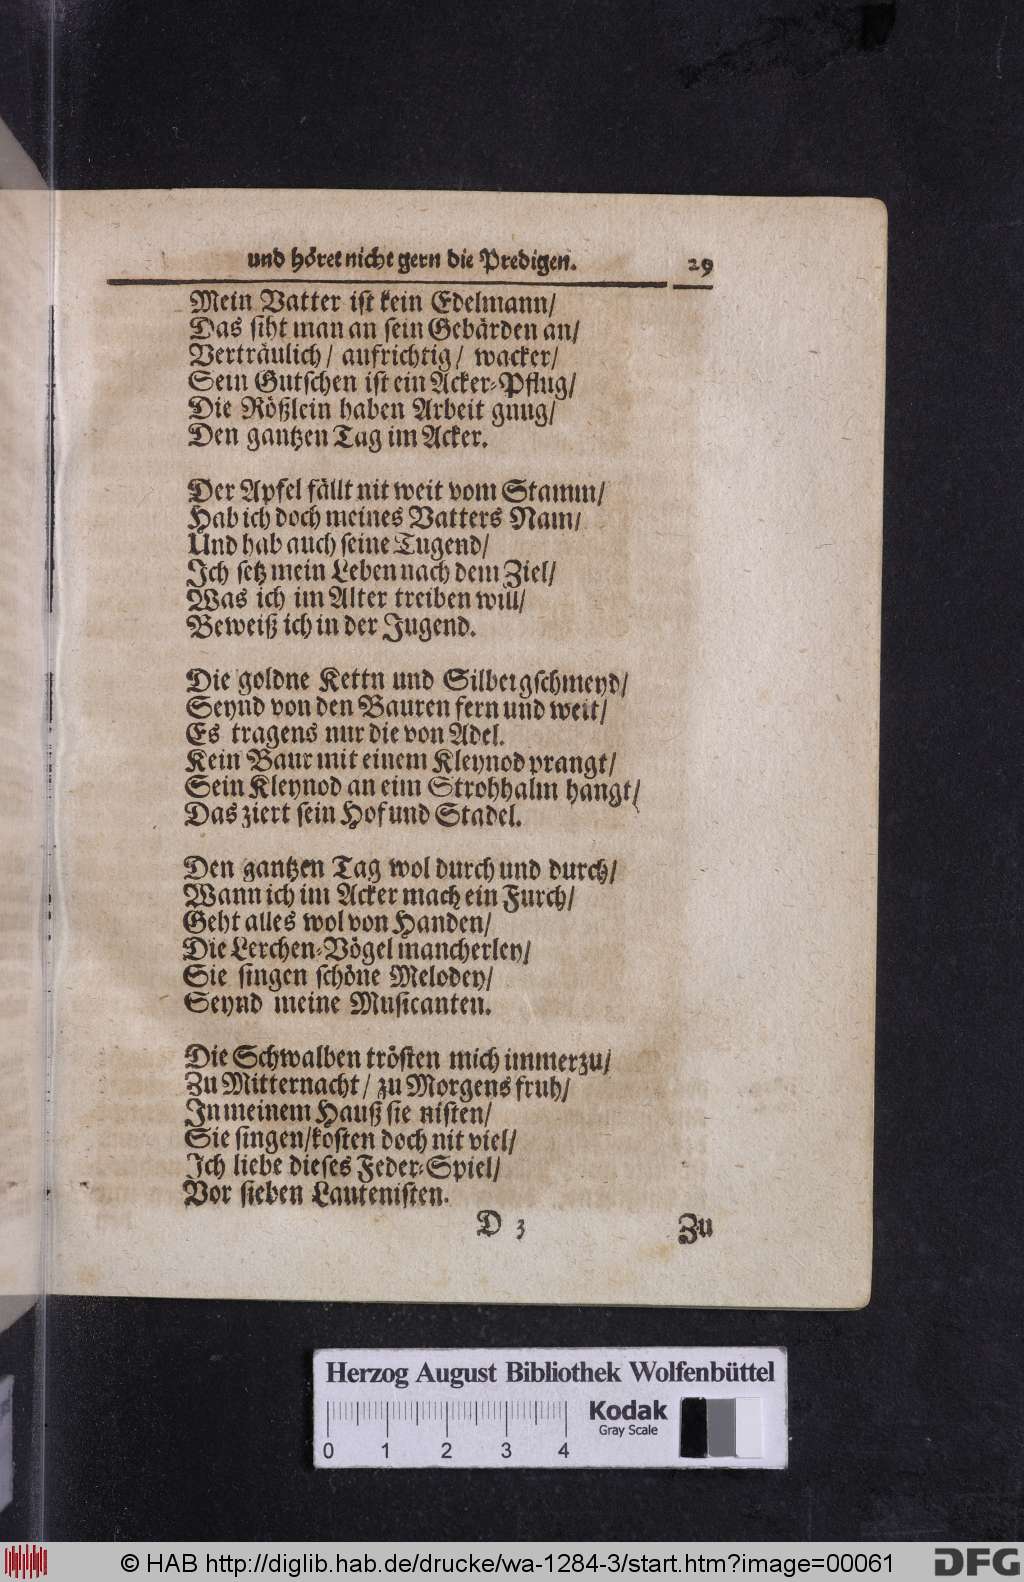 und höret nicht gern die Predigen. 29
Mein Vatter ist kein Edelmann/
Das siht man an sein Gebärden an/
Verträulich/ aufrichtig/ wacker/
Sein Gutschen ist ein Acker-Pflug/
Die Rößlein haben Arbeit gnug/
Den gantzen Tag im Acker.
Der Apfel fällt nit weit vom Stamm/
Hab ich doch meines Vatters Nam/
Und hab auch seine Tugend/
Ich setz mein Leben nach dem Ziel/
Was ich im Alter treiben will/
Beweiß ich in der Jugend.
Die goldne Kettn und Silbergschmeyd/
Seynd von den Bauren fern und weit/
Es tragens nur die von Adel.
Kein Baur mit einem Kleynod prangt/
Sein Kleynod an eim Strohhalm hangt/
Das ziert sein Hof und Stadel.
Den gantzen Tag wol durch und durch/
Wann ich im Acker mach ein Furch/
Geht alles wol von Handen/
Die Lerchen-Vögel mancherley/
Sie singen schöne Melodey/
Seynd meine Musicanten.
Die Schwalben trösten mich immerzu/
Zu Mitternacht/ zu Morgens fruh/
In meinem Hauß sie nisten/
Sie singen/kosten doch nit viel/
Ich liebe dieses Feder-Spiel/
Vor sieben Lautenisten.
D 3 Zu
Herzog August Bibliothek Wolfenbüttel
Kodak
Gray Scale
0 1 2 3 4
© HAB http://diglib.hab.de/drucke/wa-1284-3/start.htm?image=00061
DFG